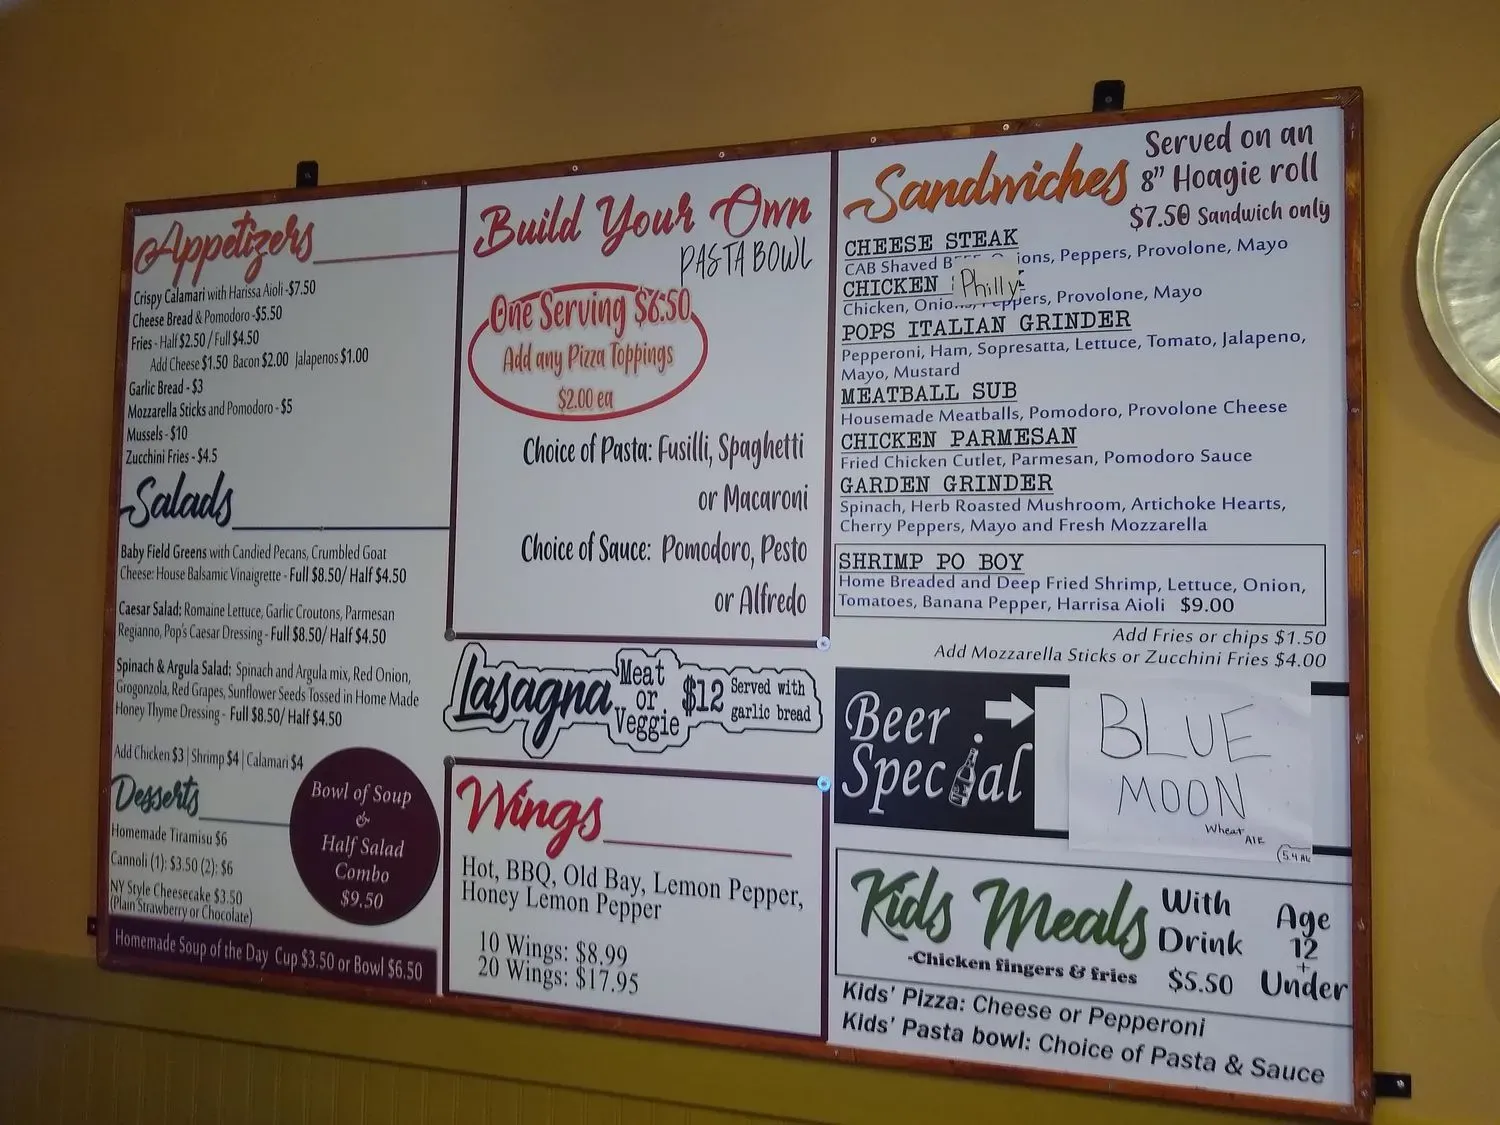 Appetizers
Crispy Calamari with Harissa Aioli -$7.50
Cheese Bread & Pomodoro -$5.50
Fries - Half $2.50 / Full $4.50
Add Cheese $1.50 Bacon $2.00 Jalapenos $1.00
Garlic Bread - $3
Mozzarella Sticks and Pomodoro - $5
Mussels - $10
Zucchini Fries - $4.5
Salads
Baby Field Greens with Candied Pecans, Crumbled Goat
Cheese: House Balsamic Vinaigrette - Full $8.50/ Half $4.50
Caesar Salad: Romaine Lettuce, Garlic Croutons, Parmesan
Regianno, Pop's Caesar Dressing - Full $8.50/ Half $4.50
Spinach & Argula Salad: Spinach and Argula mix, Red Onion,
Grogonzola, Red Grapes, Sunflower Seeds Tossed in Home Made
Honey Thyme Dressing - Full $8.50/ Half $4.50
Add Chicken $3 | Shrimp $4 | Calamari $4
Desserts
Homemade Tiramisu $6
Cannoli (1): $3.50 (2): $6
NY Style Cheesecake $3.50
(Plain Strawberry or Chocolate)
Bowl of Soup
&
Half Salad
Combo
$9.50
Homemade Soup of the Day Cup $3.50 or Bowl $6.50
Build Your Own
PASTA BOWL
One Serving $6.50
Add any Pizza Toppings
$2.00 ea
Choice of Pasta: Fusilli, Spaghetti
or Macaroni
Choice of Sauce: Pomodoro, Pesto
or Alfredo
Lasagna Meat or Veggie $12 Served with garlic bread
Wings
Hot, BBQ, Old Bay, Lemon Pepper,
Honey Lemon Pepper
10 Wings: $8.99
20 Wings: $17.95
Sandwiches
Served on an
8" Hoagie roll
$7.50 Sandwich only
CHEESE STEAK
CAB Shaved Peppers, Provolone, Mayo
CHICKEN Philly
Chicken, Peppers, Provolone, Mayo
POPS ITALIAN GRINDER
Pepperoni, Ham, Sopresatta, Lettuce, Tomato, Jalapeno,
Mayo, Mustard
MEATBALL SUB
Housemade Meatballs, Pomodoro, Provolone Cheese
CHICKEN PARMESAN
Fried Chicken Cutlet, Parmesan, Pomodoro Sauce
GARDEN GRINDER
Spinach, Herb Roasted Mushroom, Artichoke Hearts,
Cherry Peppers, Mayo and Fresh Mozzarella
SHRIMP PO BOY
Home Breaded and Deep Fried Shrimp, Lettuce, Onion,
Tomatoes, Banana Pepper, Harrisa Aioli $9.00
Add Fries or chips $1.50
Add Mozzarella Sticks or Zucchini Fries $4.00
Beer
Special
BLUE
MOON
Wheat
ALE
Kids Meals
-Chicken fingers & fries
With
Drink
$5.50
Age
12
+
Under
Kids' Pizza: Cheese or Pepperoni
Kids' Pasta bowl: Choice of Pasta & Sauce